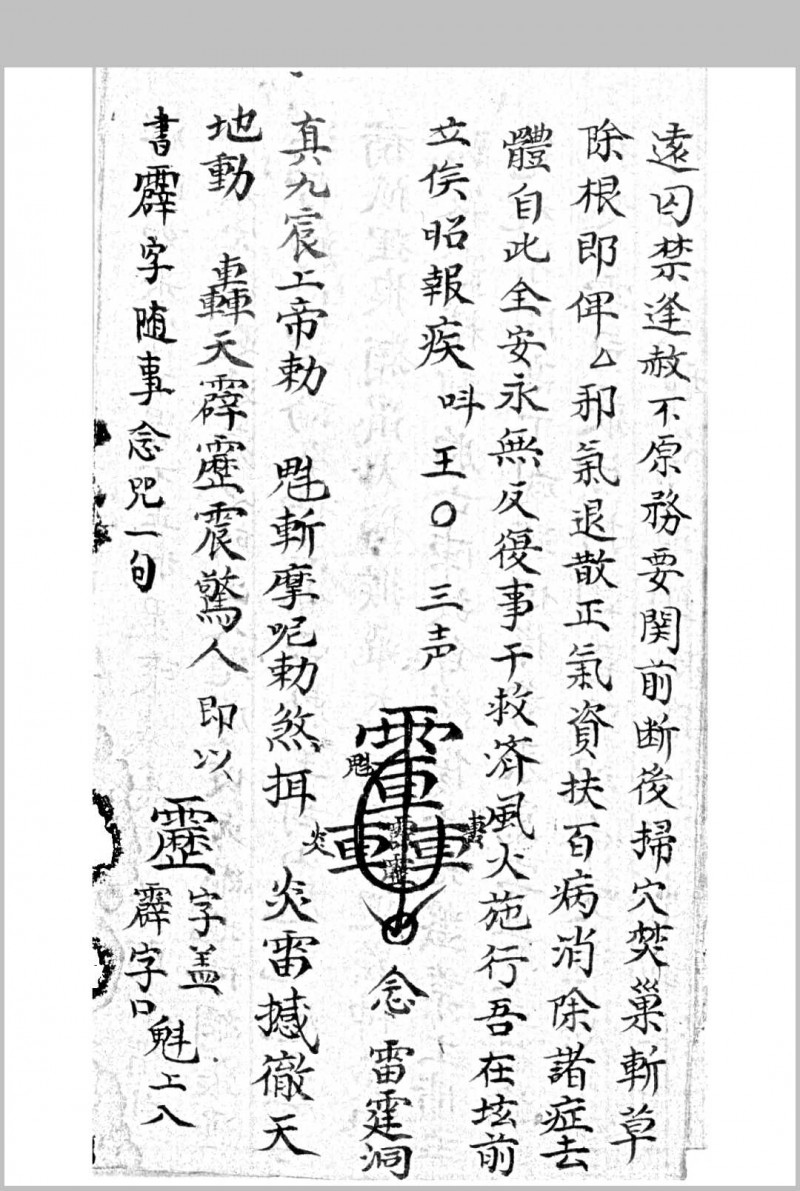 遠囚禁逢赦不原務要関前断後掃穴焚巢斬草
除根即俾厶邪氣退散正氣資扶百病消除諸症去
體自此全安永無反復事干救济風火施行吾在坛前
立俟昭報疾 呌 王〇 三声
念 雷霆洞
真九宸上帝勅 斬摩呢勅煞摄 炎雷撼徹天
地動 轟天霹靂震驚人 即以靂字盖
霹字口魁上八
書霹字随事念咒一句